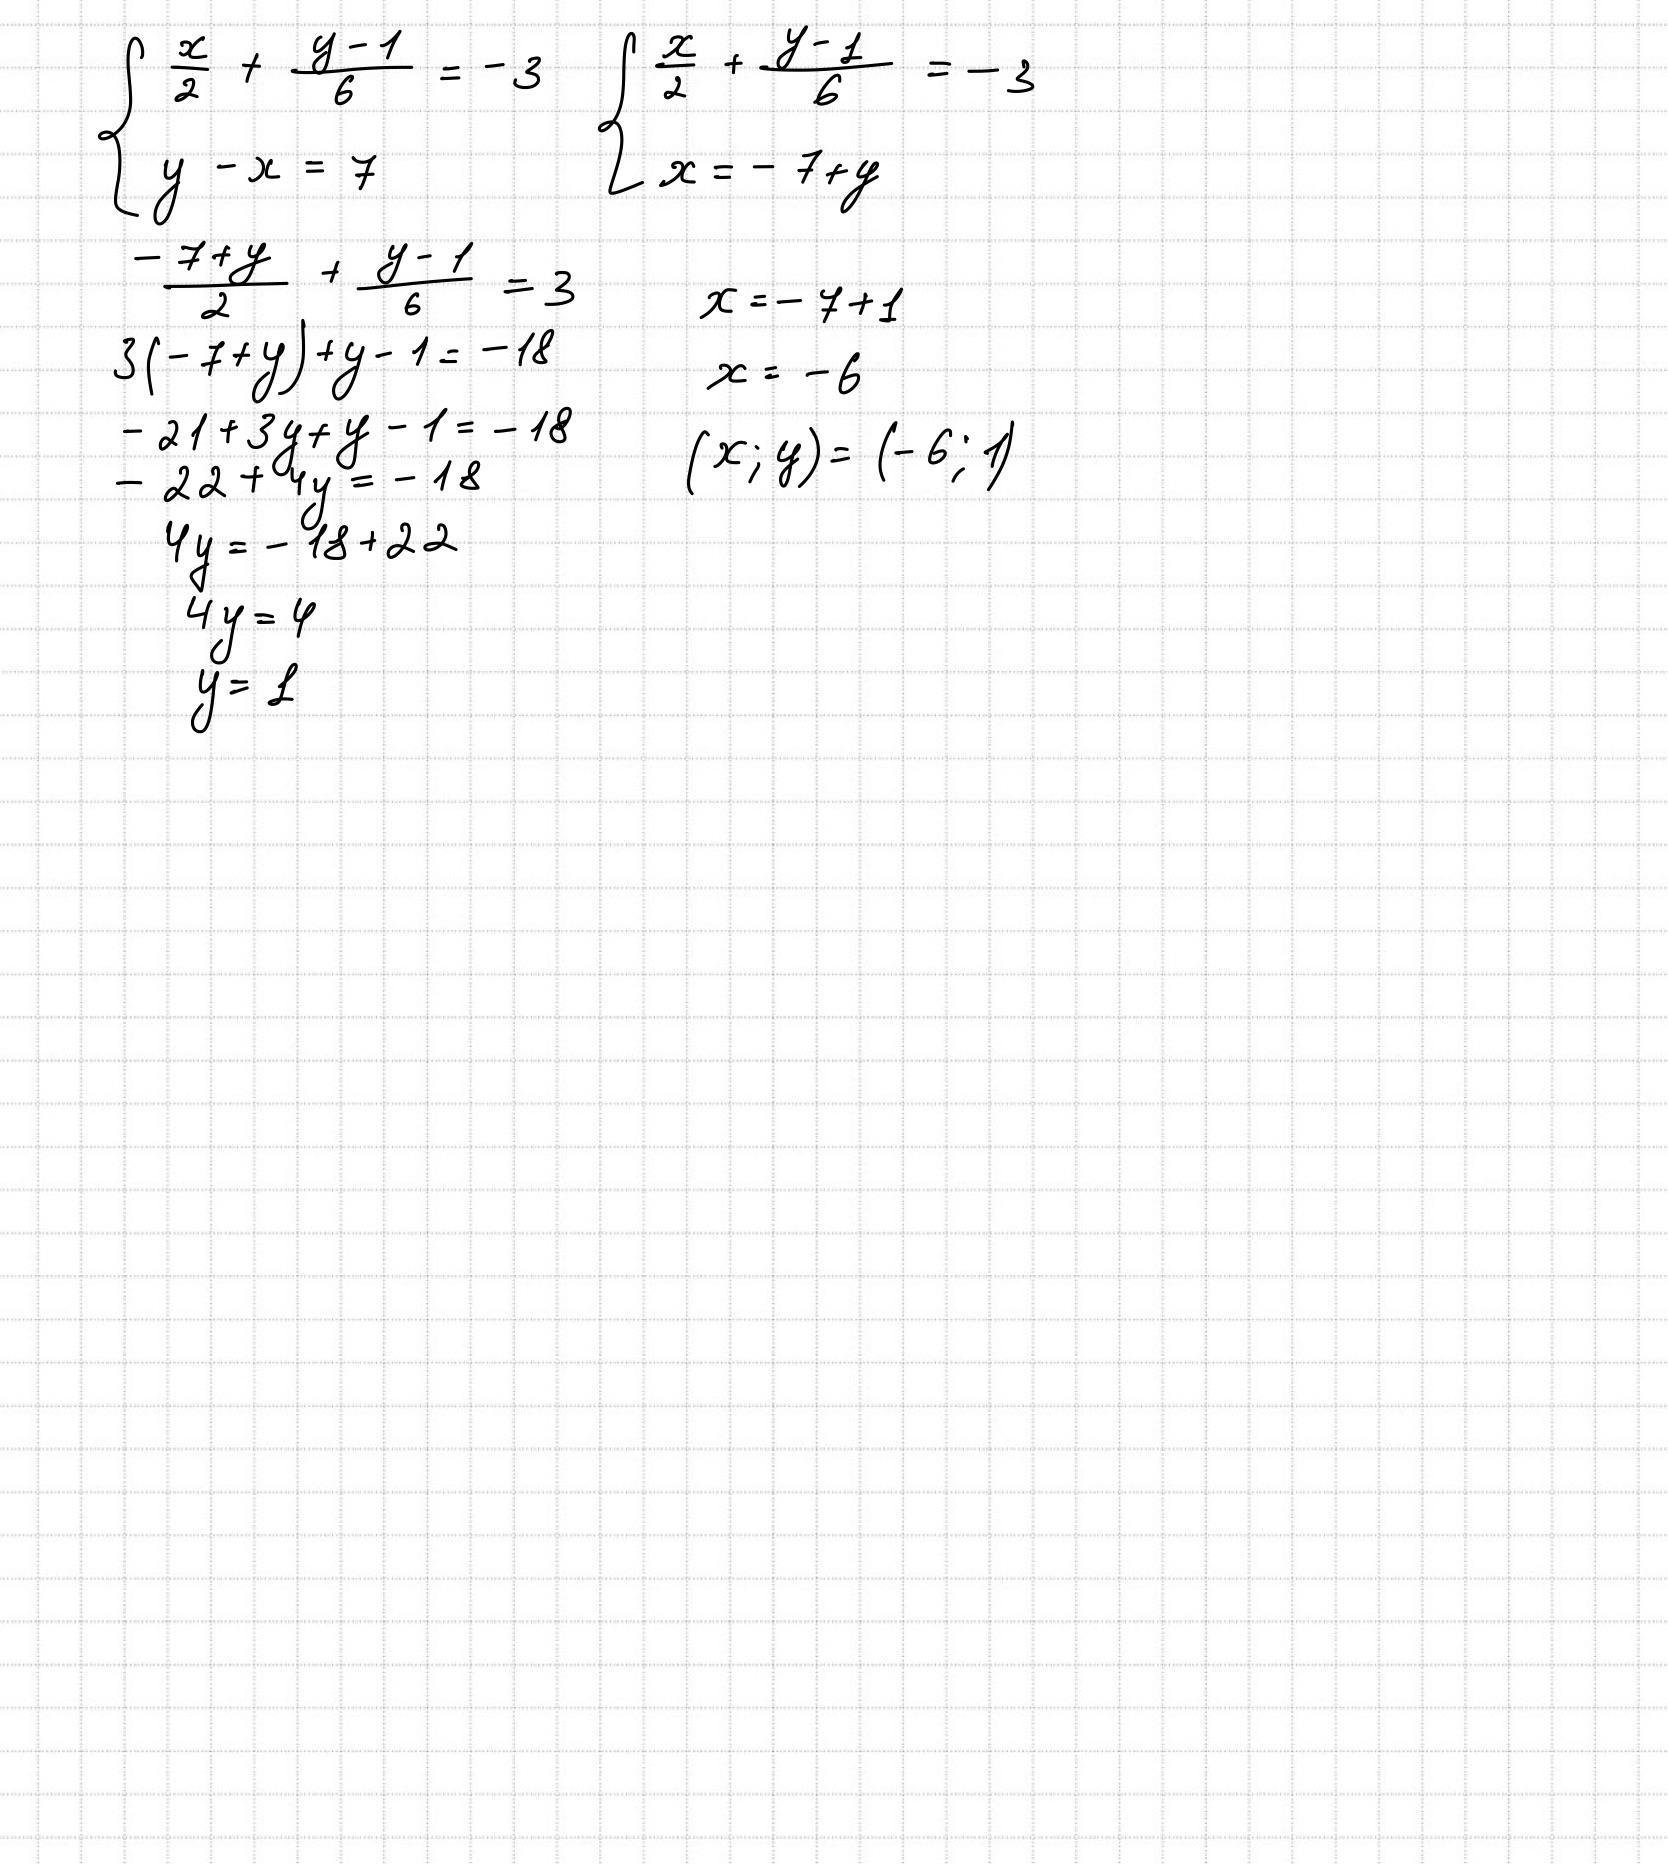 { x/2 + (y-1)/6 = -3
y - x = 7
{ x/2 + (y-1)/6 = -3
x = -7+y
(-7+y)/2 + (y-1)/6 = 3
3(-7+y)+y-1=-18
-21+3y+y-1=-18
-22+4y=-18
4y=-18+22
4y=4
y=1
x=-7+1
x=-6
(x;y)=(-6;1)